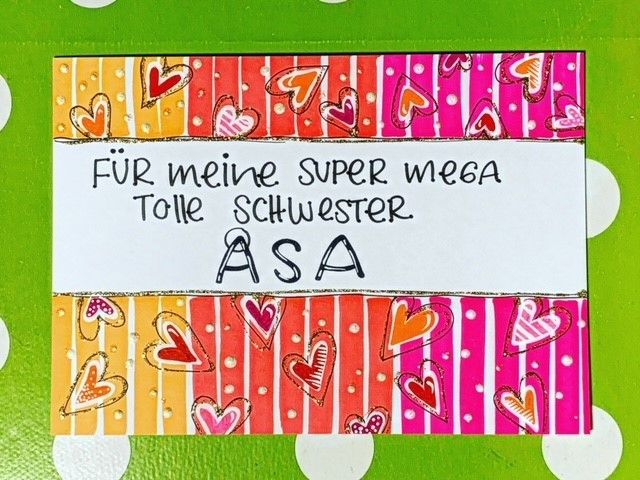 FÜR meine SUPER mega
Tolle SCHWESTER
ÅSA